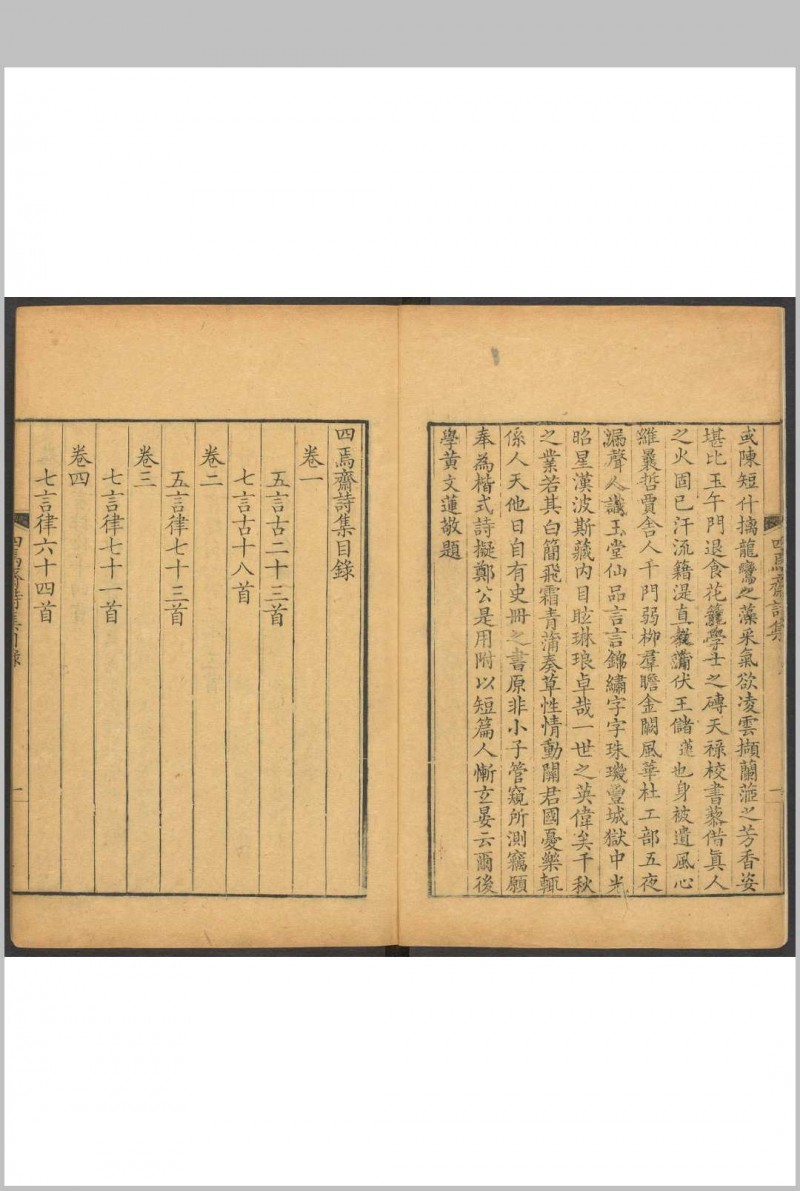 或陳短什摛龍鸞之藻采氣欲凌雲擷蘭蒞之芳香姿
堪比玉午門退食花籠學士之磚天祿校書藜借眞人
之火固已汗流籍湜直敎蒲伏王儲蓮也身被遺風心
維曩哲賈舍人千門弱柳羣瞻金闕風華杜工部五夜
漏聲人識玉堂仙品言言錦繡字字珠璣豐城獄中光
昭星漢波斯藏內目眩琳琅卓哉一世之英偉矣千秋
之業若其白簡飛霜青蒲奏草性情動關君國憂樂輒
係人天他日自有史冊之書原非小子管窺所測竊願
奉為楷式詩擬鄭公是用附以短篇人慚玄晏云爾後
學黃文蓮敬題
四焉齋詩集
四焉齋詩集目錄
卷一
五言古二十三首
七言古十八首
卷二
五言律七十三首
卷三
七言律七十一首
卷四
七言律六十四首
四焉齋詩集目錄
一